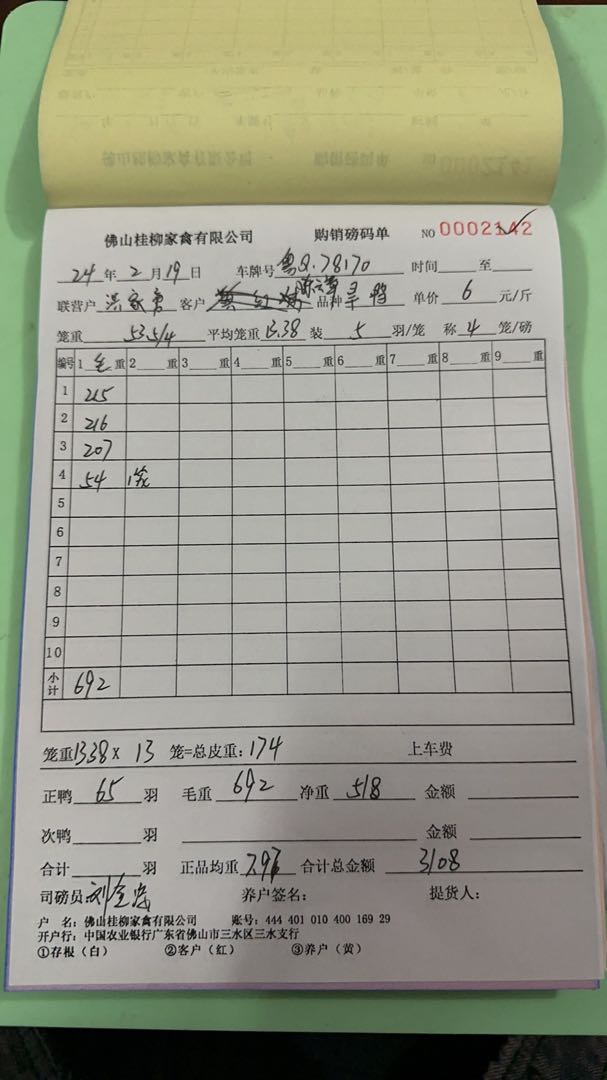 佛山桂柳家禽有限公司 购销磅码单 NO 0002142
24 年 2 月 19 日 车牌号 粤Q.78170 时间 至
联营户 洪家勇 客户 品种 旱鸭 单价 6 元/斤
笼重 53.5/4 平均笼重 13.38 装 5 羽/笼 称 4 笼/磅
编号 1 毛 重 2 重 3 重 4 重 5 重 6 重 7 重 8 重 9 重
1 215
2 216
3 207
4 54 1笼
5
6
7
8
9
10
小计 692
笼重 1338 X 13 笼=总皮重: 174 上车费
正鸭 65 羽 毛重 692 净重 518 金额
次鸭 羽 金额
合计 羽 正品均重 7.97 合计总金额 3108
司磅员 养户签名: 提货人:
户 名: 佛山桂柳家禽有限公司 账号: 444 401 010 400 169 29
开户行: 中国农业银行广东省佛山市三水区三水支行
①存根（白） ②客户（红） ③养户（黄）